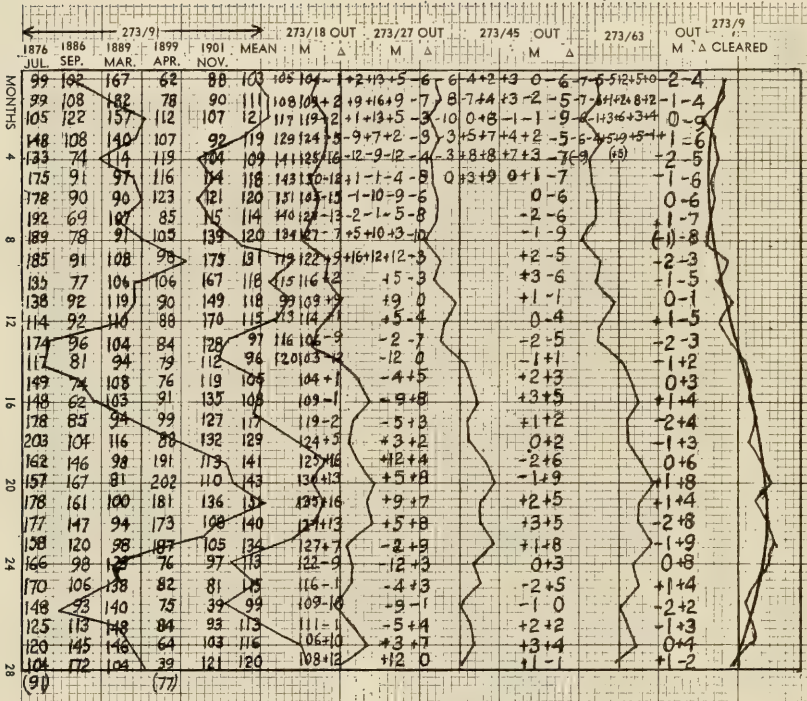 273/9 273/9
1876 1886 1889 1899 1901 MEAN 273/18 OUT 273/27 OUT 273/45 OUT 273/63 OUT CLEARED
JUL. SEP. MAR. APR. NOV. M Δ M Δ M Δ M Δ
MONTHS
99 102 167 62 88 103 105 104 -1 +2 +13 +5 -6 -6 -4 +2 +3 0 -6 -2 -4
99 108 182 78 90 111 108 109 +2 +9 +16 +9 -7 -8 -7 +4 +3 -2 -5 -1 -4
105 122 157 112 107 121 117 119 +2 +1 +13 +5 -3 -10 0 +8 -1 -1 -9 0 -9
148 108 140 107 92 119 129 124 +5 -9 +7 +2 -3 -3 +5 +7 +4 +2 -5 -1 -6
4 133 74 114 119 104 109 141 125 -16 -12 -9 -12 -4 -3 +8 +8 +7 +3 -7 (-9) (+5) -2 -5
175 91 97 116 114 118 143 130 -12 +1 -1 -4 -8 0 +3 +9 0 +1 -7 -1 -6
178 90 90 123 121 120 151 -15 -1 -10 -9 -6 0 -6 0 -6
192 69 107 85 115 114 140 -13 -2 -1 -5 -8 -2 -6 +1 -7
8 189 78 91 105 139 120 134 127 -7 +5 +10 +3 -10 -1 -9 (-1) -8
185 91 108 98 175 131 119 122 +9 +16 +12 +12 -3 +2 -5 -2 -3
135 77 106 106 167 118 115 116 +2 +5 -3 +3 -6 -1 -5
138 92 119 90 149 118 99 109 +9 +9 0 +1 -1 0 -1
12 114 92 110 88 170 115 113 114 +1 +5 -4 0 -4 +1 -5
174 96 104 84 128 97 116 106 -9 -2 -7 -2 -5 -2 -3
117 81 94 79 112 96 120 103 -12 -12 0 -1 +1 -1 +2
149 74 108 76 119 105 104 +1 -4 +5 +2 +3 0 +3
16 148 62 103 91 135 108 109 -1 -9 +8 +3 +5 -1 +4
178 85 94 99 127 117 119 -2 -5 +3 +1 +2 -2 +4
203 104 116 88 132 129 124 +5 +3 +2 0 +2 -1 +3
162 146 98 191 113 141 125 +16 +12 +4 -2 +6 0 +6
20 157 167 81 202 110 143 130 +13 +5 +8 -1 +9 +1 +8
178 161 100 181 136 151 135 +16 +9 +7 +2 +5 +1 +4
177 147 94 173 108 140 127 +13 +5 +8 +3 +5 -2 +8
158 120 98 187 105 134 127 +7 -2 +9 +1 +8 -1 +9
24 166 98 129 76 97 113 122 -9 -12 +3 0 +3 0 +8
170 106 138 82 81 115 116 -1 -4 +3 -2 +5 +1 +4
148 93 140 75 39 99 109 -10 -9 -1 -1 0 -2 +2
125 113 148 84 93 113 111 -1 -5 +4 +2 +2 -1 +3
120 145 146 64 103 116 106 +10 +3 +7 +3 +4 0 +4
28 104 172 104 39 121 120 108 +12 +12 0 +1 -1 +1 -2
(91) (77)